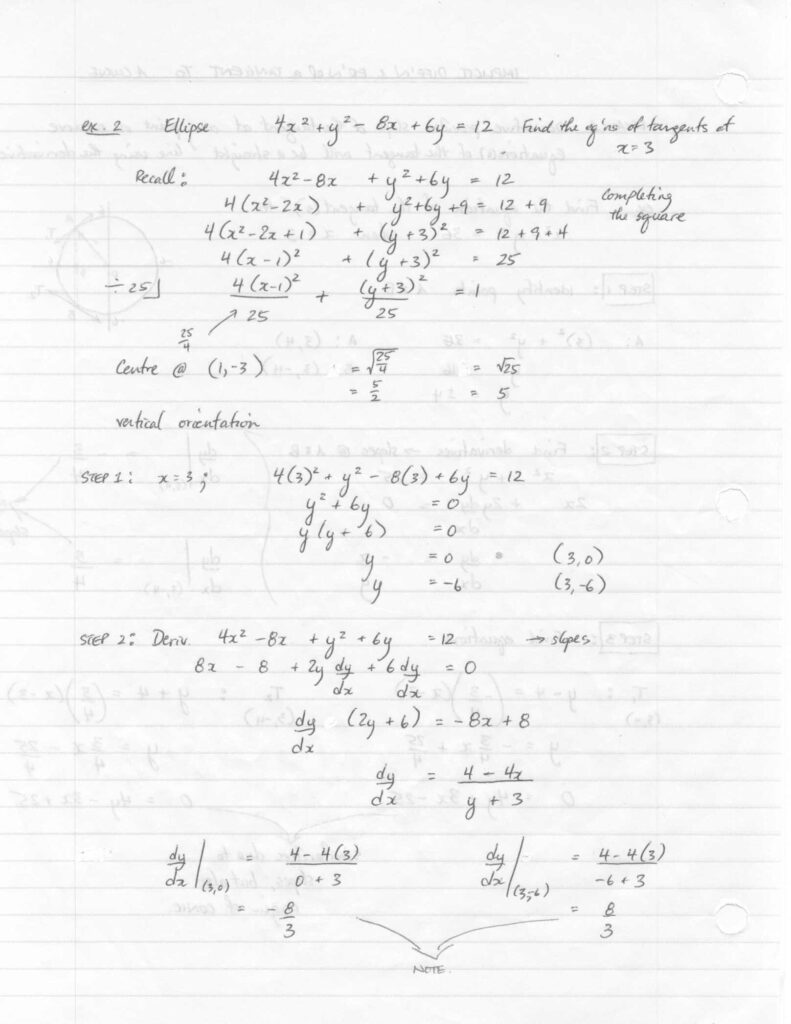 ex. 2 Ellipse 4x² + y² - 8x + 6y = 12 Find the eq'ns of tangents at
x = 3
Recall: 4x² - 8x + y² + 6y = 12
4(x² - 2x) + y² + 6y + 9 = 12 + 9 completing
4(x² - 2x + 1) + (y + 3)² = 12 + 9 + 4 the square
4(x - 1)² + (y + 3)² = 25
÷ 25 4(x-1)²/25 + (y+3)²/25 = 1
25/4
Centre @ (1, -3) = √(25/4) = √25
= 5/2 = 5
vertical orientation
STEP 1: x = 3; 4(3)² + y² - 8(3) + 6y = 12
y² + 6y = 0
y(y + 6) = 0
y = 0 (3, 0)
y = -6 (3, -6)
STEP 2: Deriv. 4x² - 8x + y² + 6y = 12 → slopes
8x - 8 + 2y dy/dx + 6 dy/dx = 0
dy/dx (2y + 6) = -8x + 8
dy/dx = (4 - 4x)/(y + 3)
dy/dx |(3,0) = (4 - 4(3))/(0 + 3) dy/dx |(3,-6) = (4 - 4(3))/(-6 + 3)
= -8/3 = 8/3
NOTE.